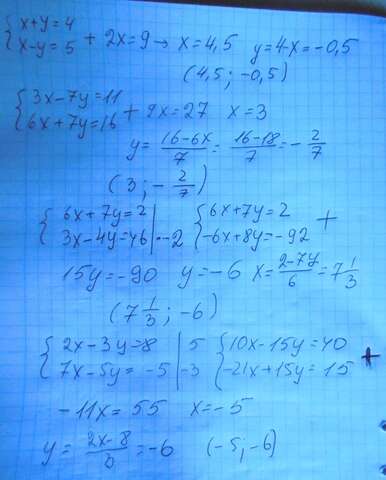 {x+y=4
{x-y=5 + 2x=9 → x=4,5 y=4-x=-0,5
(4,5; -0,5)
{3x-7y=11
{6x+7y=16 + 9x=27 x=3
y=(16-6x)/7=(16-18)/7=-2/7
(3; -2/7)
{6x+7y=2 | {6x+7y=2 +
{3x-4y=46 | -2 {-6x+8y=-92
15y=-90 y=-6 x=(2-7y)/6=7 1/3
(7 1/3; -6)
{2x-3y=8 | 5 {10x-15y=40 +
{7x-5y=-5 | -3 {-21x+15y=15
-11x=55 x=-5
y=(2x-8)/3=-6 (-5; -6)